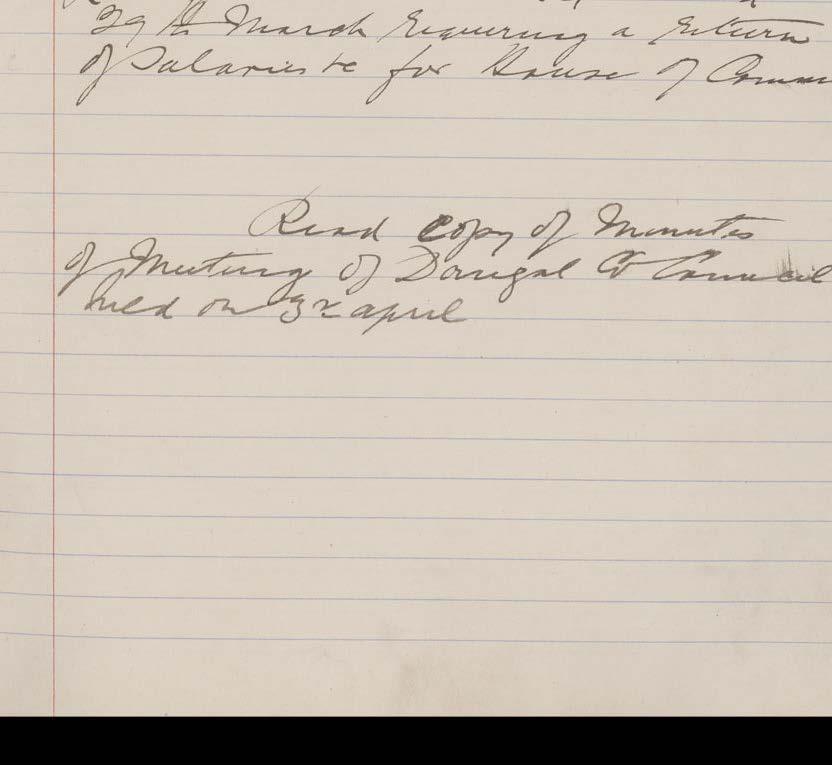 29th March requiring a return
of Salaries &c for House of Comm
Read Copy of Minutes
of Meeting of Donegal Co Council
held on 3rd april